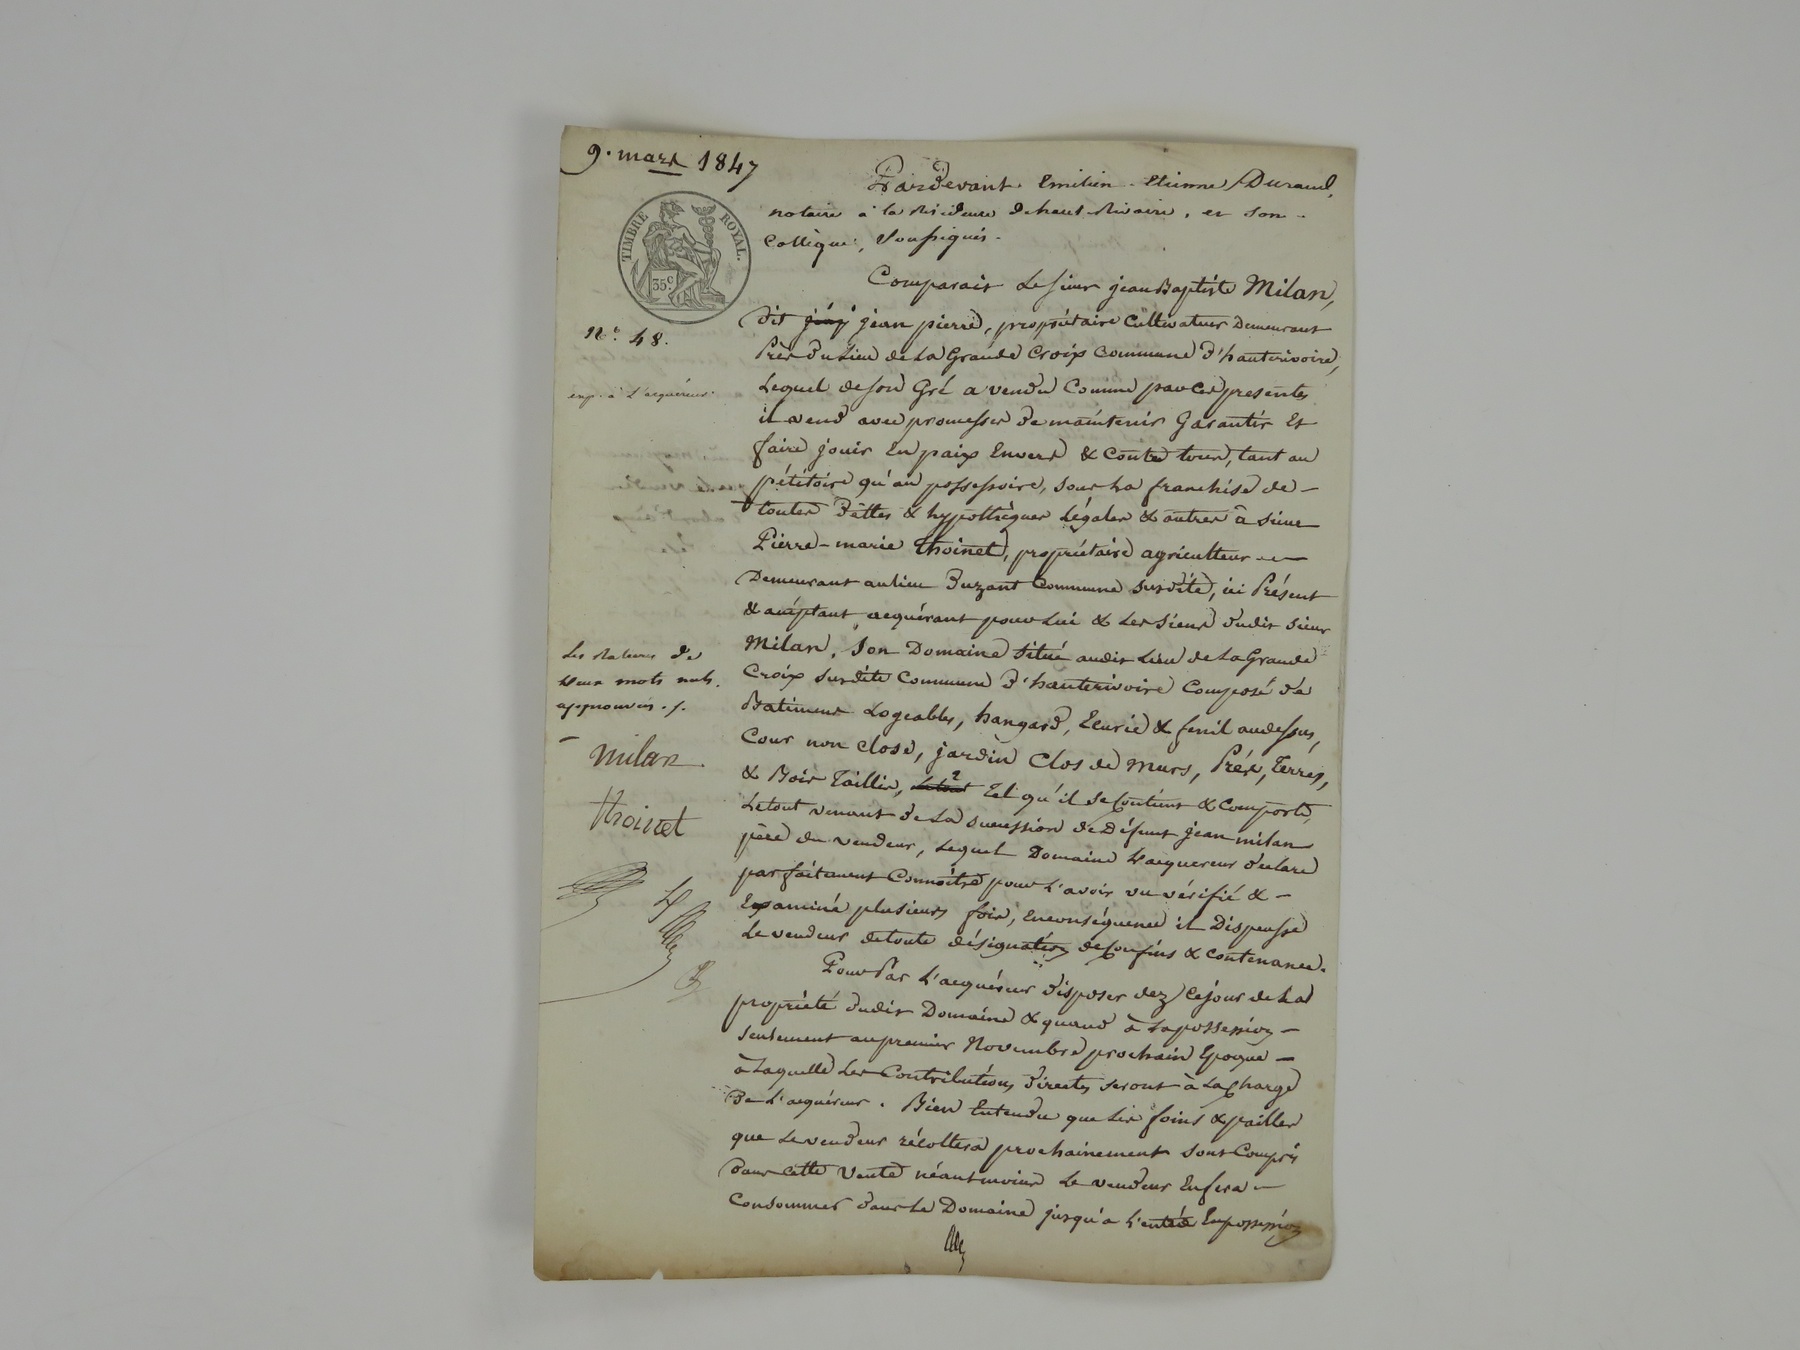 9. mars 1847
TIMBRE ROYAL.
35c
Pardevant Emilien Etienne Durand,
notaire à la Résidence de haut-Rivoire, et son
Collègue, Soussignés.
Comparait Le sieur jean Baptiste Milan,
N.° 48.
dit jean pierre, propriétaire Cultivateur Demeurant
Près du Lieu de La Grande Croix Commune d'hauterivoire,
exp. à L'acquéreur.
Lequel de son Gré a vendu Comme par Ces presentes
il vend avec promesse de maintenir Garantir Et
faire jouir En paix Envers & Contre tous, tant au
pétitoire qu'au possessoire, sous La franchise de
toutes Dettes & hypothèques Légales & autres à sieur
Pierre-marie Thoinet, propriétaire agriculteur
Demeurant au lieu Buzant Commune susdite, ici Présent
& acceptant acquérant pour Lui & Les Siens dudit sieur
Milan, Son Domaine situé audit Lieu de La Grande
Croix susdite Commune d'hauterivoire Composé de
Batiment Logeables, hangard, Ecurie & fenil audessus,
Cour non close, jardin Clos de Murs, Prés, Terres,
& Bois Taillis, Le tout Tel qu'il se Contient & Comporte,
Le tout venant de La succession de Défunt jean milan
père du vendeur, Lequel Domaine L'acquereur déclare
parfaitement Connoitre pour L'avoir vu vérifié &
Examiné plusieurs fois, En conséquence il Dispense
Le vendeur de toute désignation de Confins & Contenance.
Les Ratures de
Deux mots nuls.
approuvées ./.
milan
thoinet
Pour Par L'acquéreur disposer dez Ce jour de La
propriété dudit Domaine & quand à La possession
seulement au premier Novembre prochain Epoque
à Laquelle Les Contributions directes seront à La Charge
De L'acquéreur. Bien Entendu que Les foins & pailles
que Le vendeur récoltera prochainement sont Compris
dans cette vente néantmoins Le vendeur En fera
Consommer dans Le Domaine jusqu'à L'entrée En possession